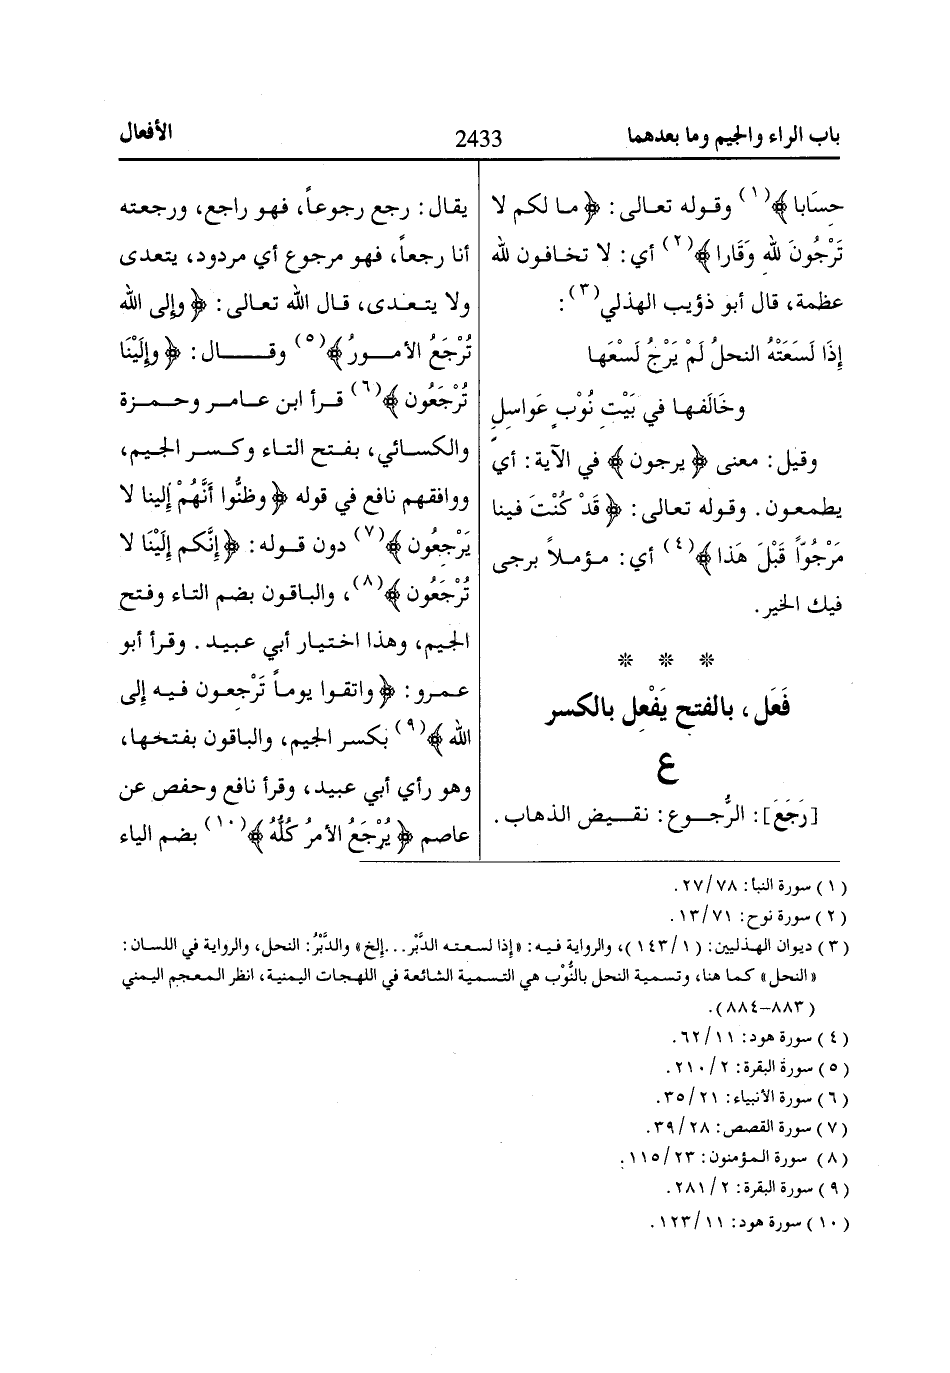 باب الراء والجيم وما بعدهما
2433
الأفعال
حِسَابا﴾(١) وقوله تعالى: ﴿ما لكم لا
تَرْجُونَ لله وَقَارا﴾(٢) أي: لا تخافون لله
عظمة، قال أبو ذؤيب الهذلي(٣):
إِذَا لَسَعَتْهُ النحلُ لَمْ يَرْجُ لَسْعَها
وخَالَفها في بَيْتِ نُوْبٍ عَواسلِ
وقيل: معنى ﴿يرجون﴾ في الآية: أي
يطمعون. وقوله تعالى: ﴿قَدْ كُنْتَ فينا
مَرْجُوّاً قَبْلَ هَذا﴾(٤) أي: مؤملاً يرجى
فيك الخير.
* * *
فَعَل، بالفتح يَفْعِل بالكسر
ع
[رَجَعَ]: الرُّجوع: نقيض الذهاب.
يقال: رجع رجوعاً، فهو راجع، ورجعته
أنا رجعاً، فهو مرجوع أي مردود، يتعدى
ولا يتعدى، قال الله تعالى: ﴿وإلى الله
تُرْجَعُ الأمورُ﴾(٥) وقال: ﴿وإِلَيْنَا
تُرْجَعُون﴾(٦) قرأ ابن عامر وحمزة
والكسائي، بفتح التاء وكسر الجيم،
ووافقهم نافع في قوله ﴿وظنُّوا أَنَّهُمْ إلينا لا
يَرْجِعون﴾(٧) دون قوله: ﴿إِنَّكم إِلَيْنَا لا
تُرْجَعُون﴾(٨)، والباقون بضم التاء وفتح
الجيم، وهذا اختيار أبي عبيد. وقرأ أبو
عمرو: ﴿واتقوا يوماً تَرْجِعون فيه إلى
الله﴾(٩) بكسر الجيم، والباقون بفتحها،
وهو رأي أبي عبيد، وقرأ نافع وحفص عن
عاصم ﴿يُرْجَعُ الأمرُ كُلُّهُ﴾(١٠) بضم الياء
(١) سورة النبأ: ٢٧/٧٨.
(٢) سورة نوح: ١٣/٧١.
(٣) ديوان الهذليين: (١٤٣/١)، والرواية فيه: «إذا لسعته الدَّبْر...إلخ» والدَّبْرُ: النحل، والرواية في اللسان:
«النحل» كما هنا، وتسمية النحل بالنُّوْب هي التسمية الشائعة في اللهجات اليمنية، انظر المعجم اليمني
(٨٨٣-٨٨٤).
(٤) سورة هود: ٦٢/١١.
(٥) سورة البقرة: ٢١٠/٢.
(٦) سورة الأنبياء: ٣٥/٢١.
(٧) سورة القصص: ٣٩/٢٨.
(٨) سورة المؤمنون: ١١٥/٢٣.
(٩) سورة البقرة: ٢٨١/٢.
(١٠) سورة هود: ١٢٣/١١.